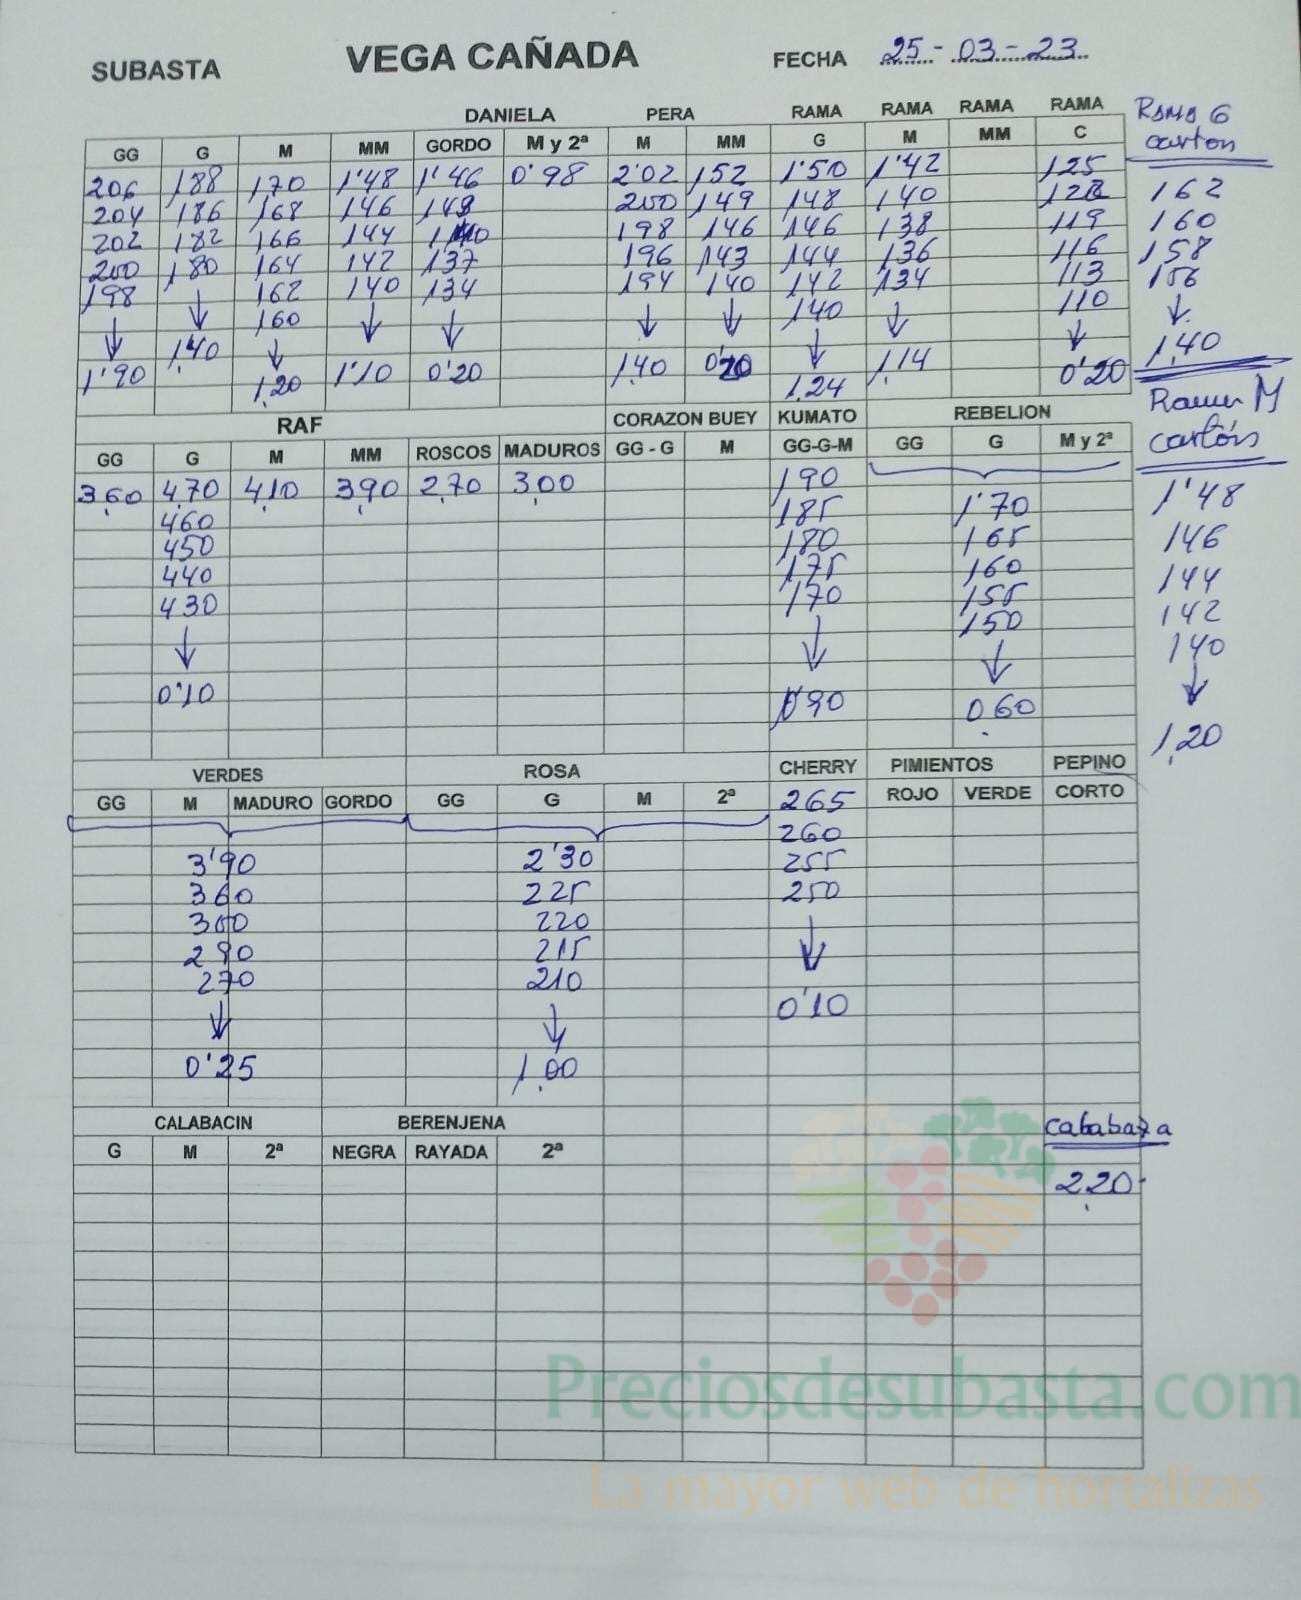 SUBASTA VEGA CAÑADA FECHA 25-03-23
DANIELA PERA RAMA RAMA RAMA RAMA Rama G
GG G M MM GORDO M y 2ª M MM G M MM C carton
206 188 170 1'48 1'46 0'98 2'02 152 1'50 1'42 125
204 186 168 146 149 200 149 148 140 162
202 182 166 144 198 146 146 138 119 160
200 180 164 142 137 196 143 144 136 116 158
198 ↓ 162 140 134 194 140 142 134 113 156
↓ 160 ↓ ↓ ↓ ↓ 140 ↓ 110 ↓
1'90 1,40 ↓ 1'10 0'20 1,40 0'20 ↓ 1,14 ↓ 1,40
1,20 1,24 0'20
RAF CORAZON BUEY KUMATO REBELION Rama M
GG G M MM ROSCOS MADUROS GG - G M GG-G-M GG G M y 2ª cartón
3,60 4,70 4,10 3,90 2,70 3,00 190 1'48
460 185 1'70
450 180 165 146
440 175 160 144
430 170 155 142
↓ ↓ 150 140
0'10 0'90 ↓ ↓
0,60 1,20
VERDES ROSA CHERRY PIMIENTOS PEPINO
GG M MADURO GORDO GG G M 2ª 265 ROJO VERDE CORTO
260
3'90 2'30 255
360 225 250
300 220 ↓
290 215
270 210
↓ ↓ 0'10
0'25 1,00
CALABACIN BERENJENA calabaza
G M 2ª NEGRA RAYADA 2ª
2,20
Preciosdesubasta.com
La mayor web de hortalizas